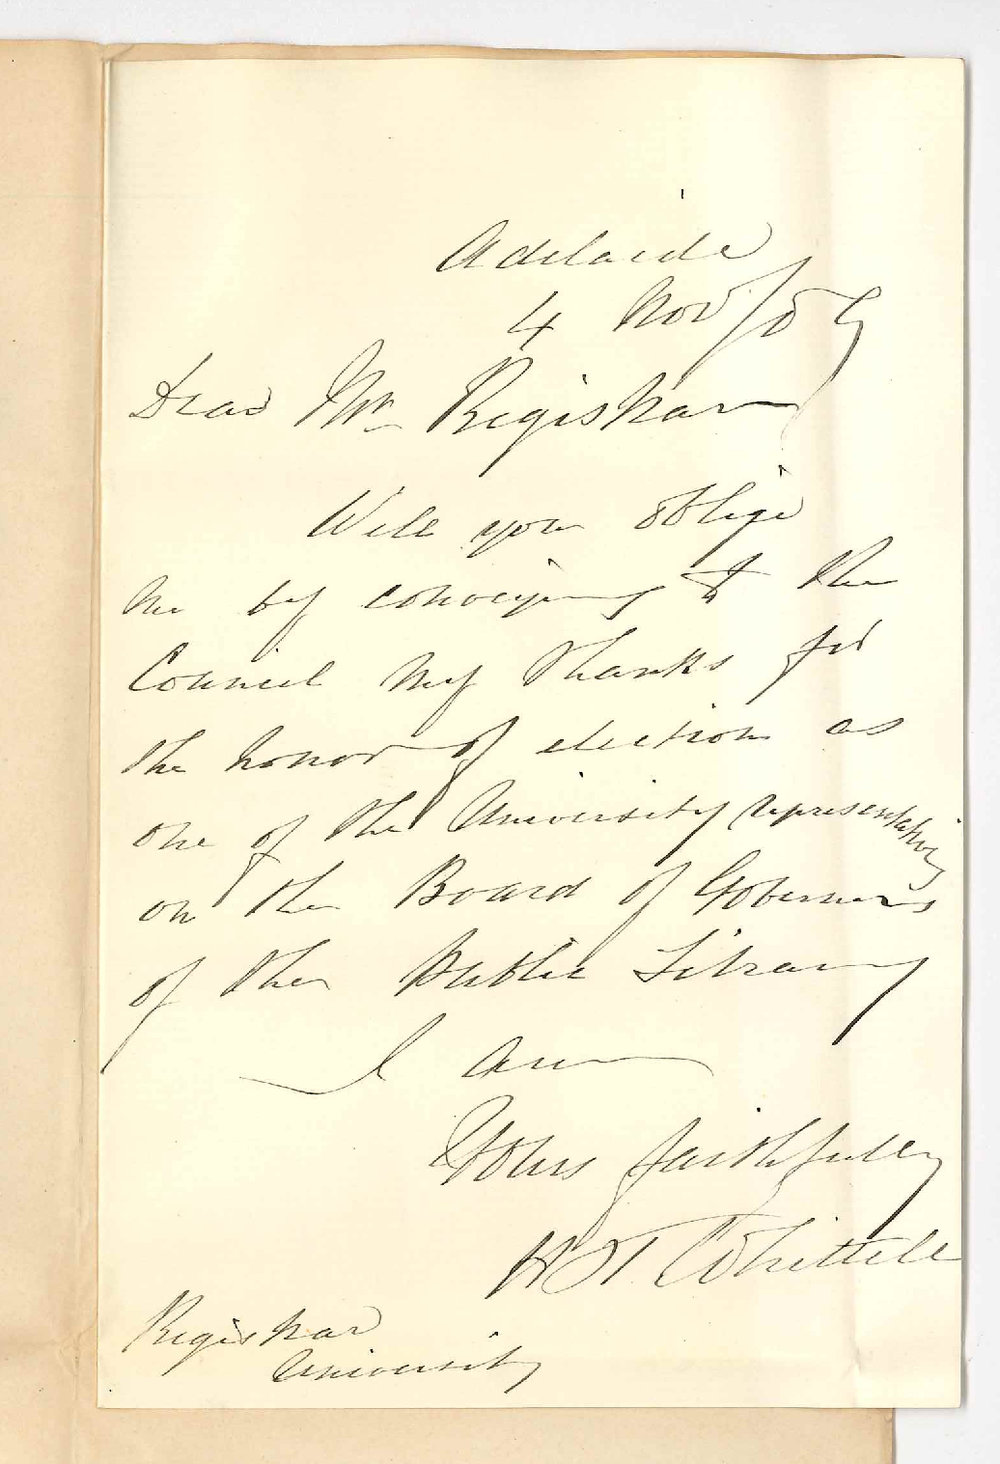 Adelaide
4 Nov
Dear Mr Registrar
Will you oblige
me by conveying to the
Council my thanks for
the honor of election as
one of the University representatives
on the Board of Governors
of the Public Library
I am
Yours faithfully
H T Whittell
Registrar
University